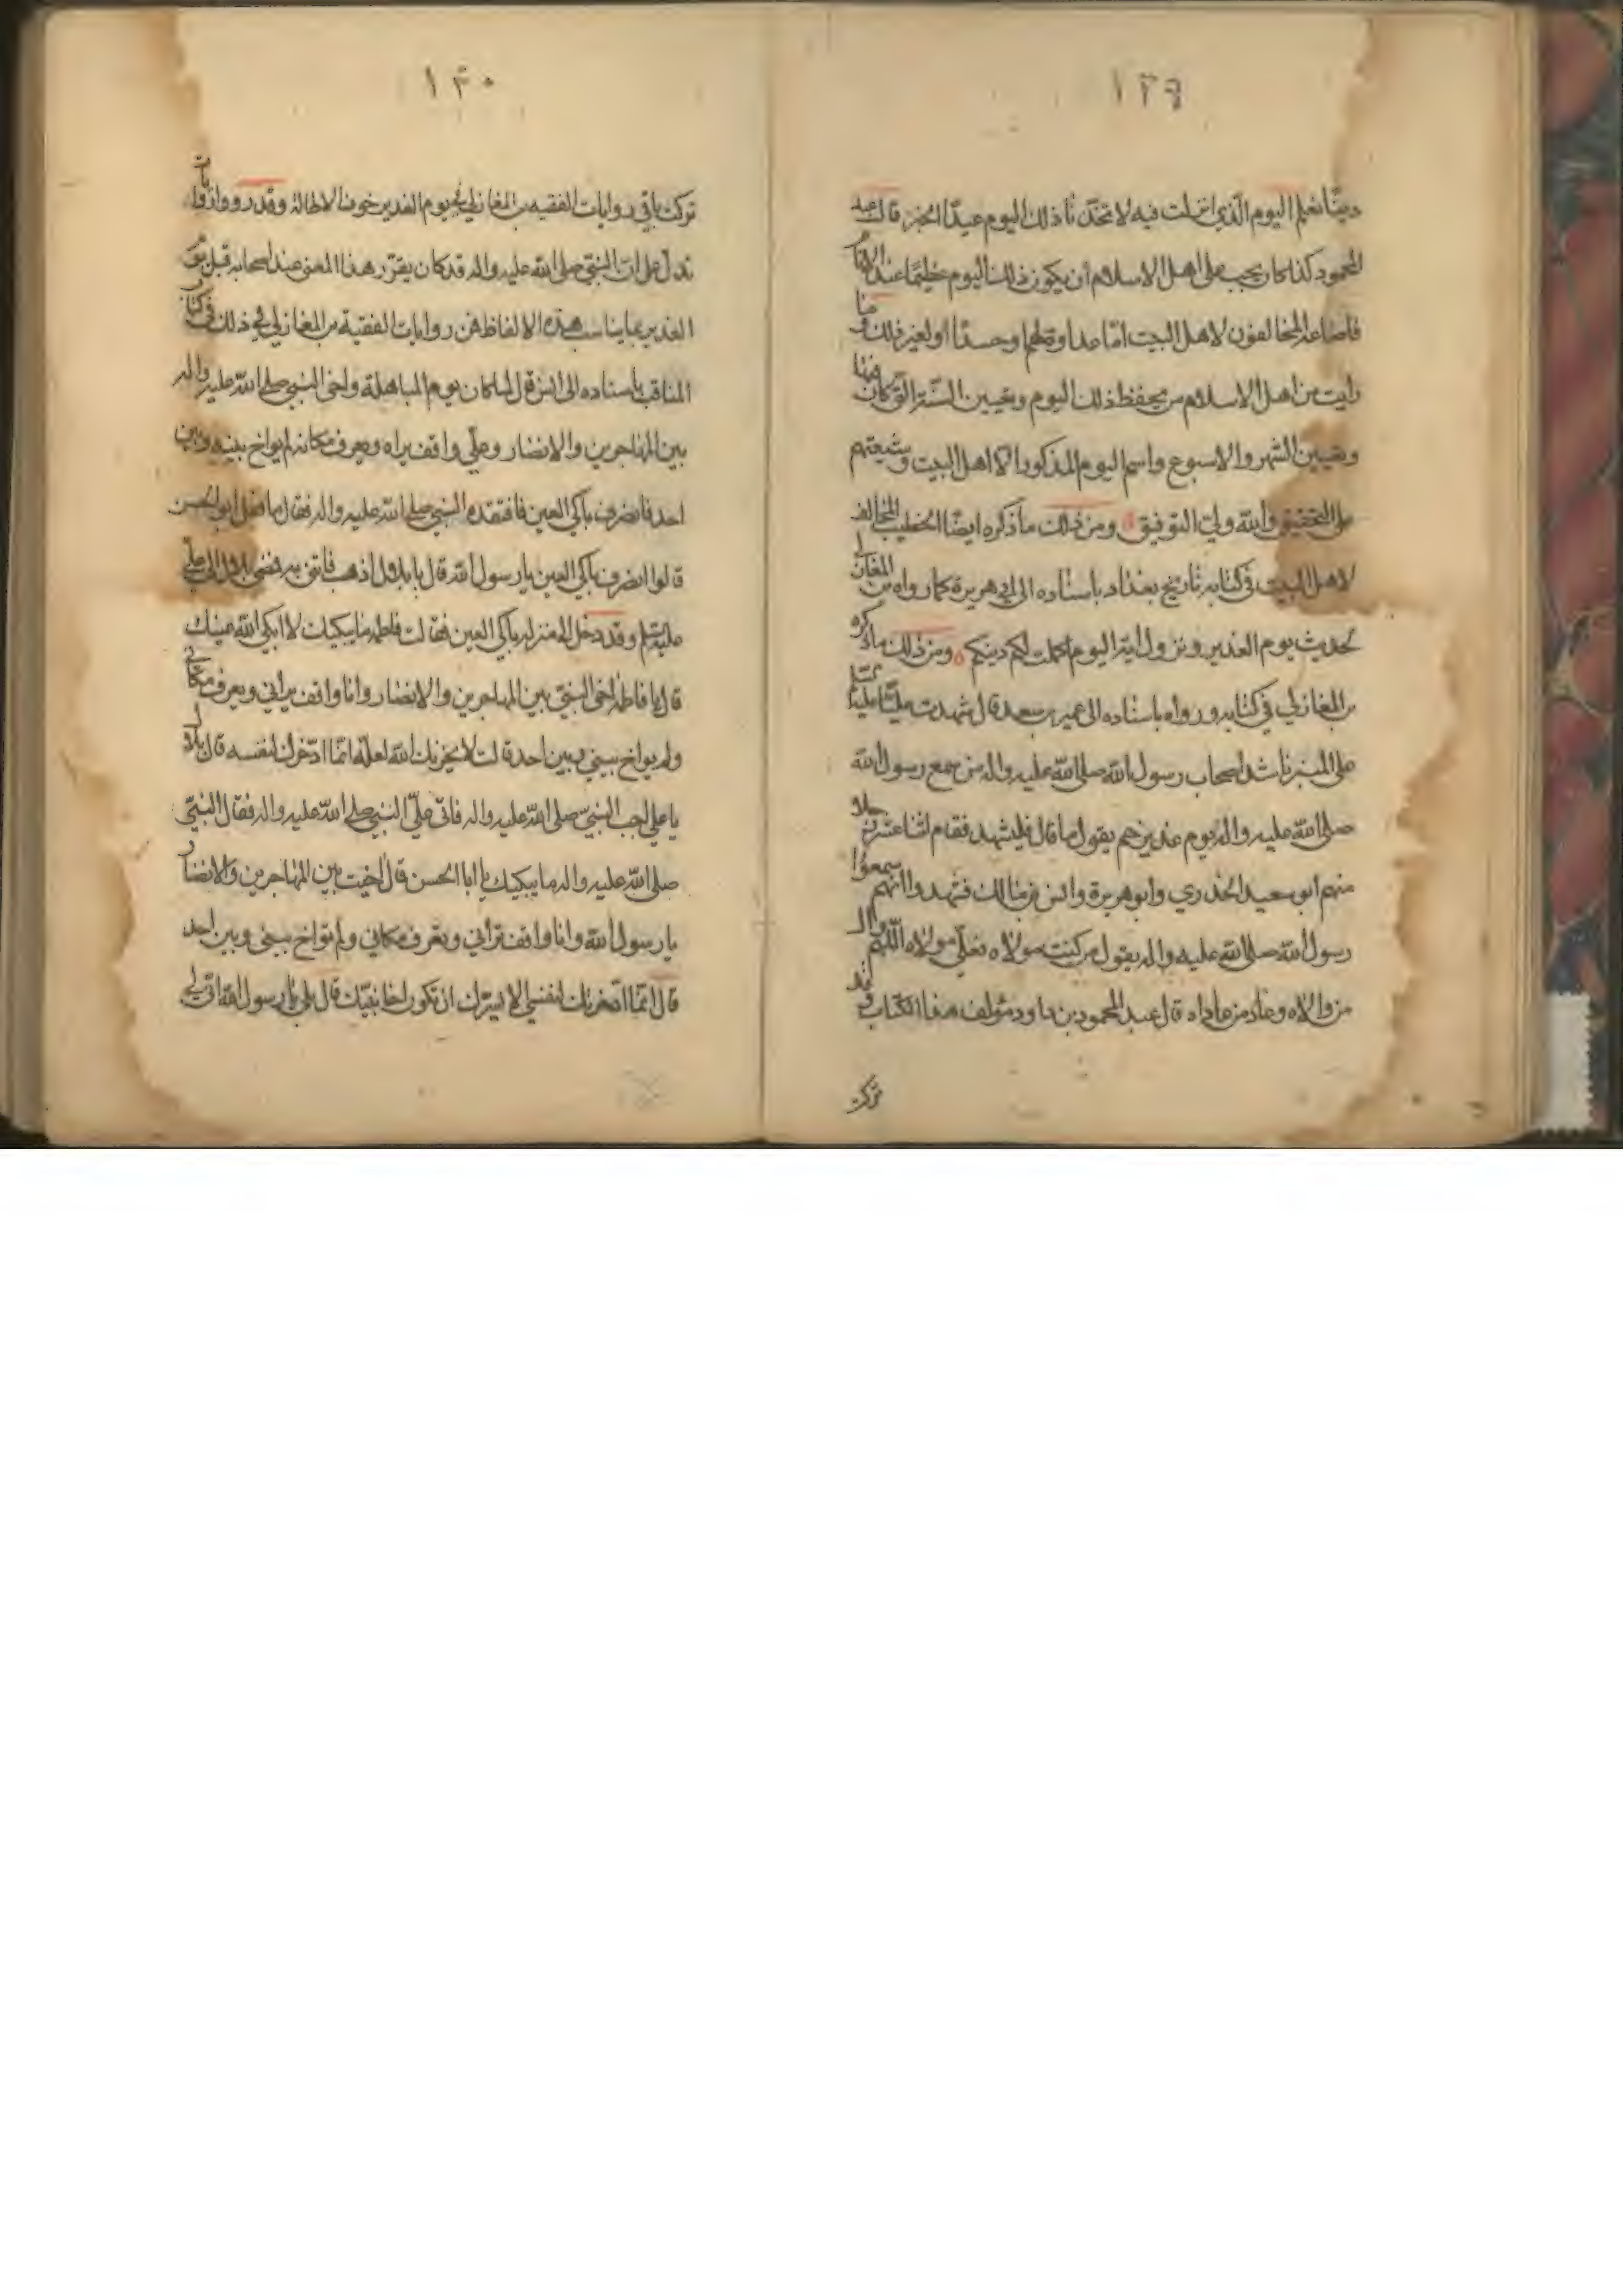 ١٣٩
دينا نعلم اليوم الذي انزلت فيه لاتخذنا ذلك اليوم عيدا الخبر قال عبد
المحمود كذا كان يجب على اهل الاسلام أن يكون ذلك اليوم عظيما عند الانام
فاضاعه المخالفون لاهل البيت اما عداوة لهم او حسدا او لغير ذلك وما
رايت من اهل الاسلام من يحفظ ذلك اليوم وتعيين السنة التي كان فيها
وتعيين الشهر والاسبوع واسم اليوم المذكور الا اهل البيت وشيعتهم
على التحقيق والله ولي التوفيق ومن ذلك ما ذكره ايضا الخطيب المخالف
لاهل البيت في كتابه تاريخ بغداد باسناده الى ابي هريرة كما رواه بن المغازلي
لحديث يوم الغدير ونزول اية اليوم اكملت لكم دينكم ومن ذلك ما ذكره
بن المغازلي في كتابه ورواه باسناده الى عمير بن سعد قال شهدت عليا
على المنبر ناشد اصحاب رسول الله صلى الله عليه واله من سمع رسول الله
صلى الله عليه واله يوم غدير خم يقول ما قال فليشهد فقام اثنا عشر رجلا
منهم ابو سعيد الخدري وابو هريرة وانس بن مالك فشهدوا انهم سمعوا
رسول الله صلى الله عليه واله يقول من كنت مولاه فعلي مولاه اللهم وال
من والاه وعاد من عاداه قال عبد المحمود بن داود مؤلف هذا الكتاب وقد
تركت
١٣٠
تركت باقي روايات الفقيه بن المغازلي في يوم الغدير خوف الاطالة وقد رووا روايات
تدل على ان النبي صلى الله عليه واله قد كان يقرر هذا المعنى عند اصحابه قبل يوم
الغدير بما يناسب هذه الالفاظ فمن روايات الفقيه بن المغازلي في ذلك في كتاب
المناقب باسناده الى انس قال لما كان يوم المباهلة واخى النبي صلى الله عليه واله
بين المهاجرين والانصار وعلي واقف يراه ويعرف مكانه لم يواخ بينه وبين
احد فانصرف باكي العين فافتقده النبي صلى الله عليه واله فقال ما فعل ابو الحسن
قالوا انصرف باكي العين يا رسول الله قال يا بلال اذهب فاتني به فمضى بلال الى علي
عليه السلم وقد دخل الى منزله باكي العين فقالت فاطمة ما يبكيك لا ابكى الله عينيك
قال يا فاطمة اخى النبي بين المهاجرين والانصار وانا واقف يراني ويعرف مكاني
ولم يواخ بيني وبين احد قالت لا يحزنك الله لعله انما ادخرك لنفسه قال بلال
يا علي اجب النبي صلى الله عليه واله فاتى علي النبي صلى الله عليه واله فقال النبي
صلى الله عليه واله ما يبكيك يا ابا الحسن قال اخيت بين المهاجرين والانصار
يا رسول الله وانا واقف تراني وتعرف مكاني ولم تواخ بيني وبين احد
قال انما ادخرتك لنفسي الا يسرك ان تكون اخا نبيك قال بلى يا رسول الله اني لي